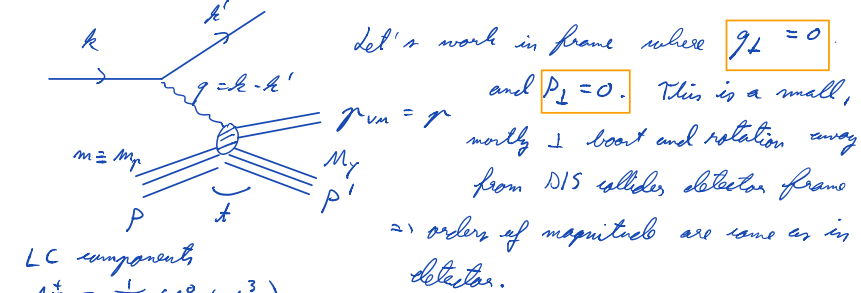 k
k'
q = k - k'
p_VM = p
m ≡ m_p
M_Y
P
t
P'
LC components
Let's work in frame where q⊥ = 0.
and P⊥ = 0. This is a small,
mostly ⊥ boost and rotation away
from DIS collider detector frame
=> orders of magnitude are same as in
detector.